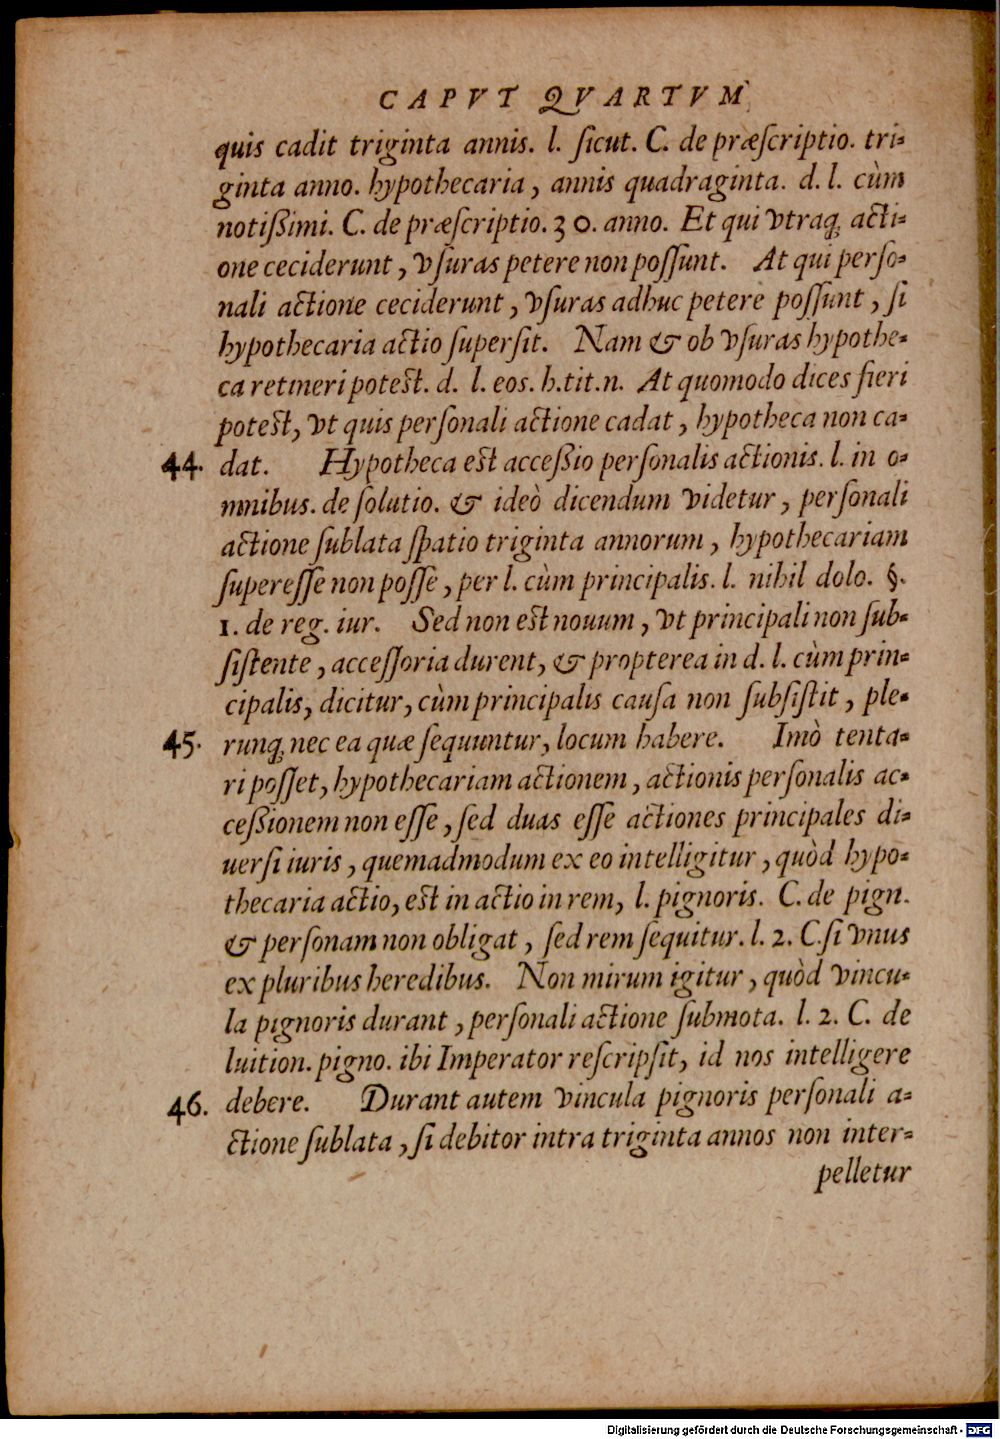 CAPVT QVARTVM
quis cadit triginta annis. l. ſicut. C. de præſcriptio. tri-
ginta anno. hypothecaria, annis quadraginta. d. l. cùm
notißimi. C. de præſcriptio. 30. anno. Et qui vtraq; acti-
one ceciderunt, vſuras petere non poſſunt. At qui perſo-
nali actione ceciderunt, vſuras adhuc petere poſſunt, ſi
hypothecaria actio ſuperſit. Nam & ob vſuras hypothe-
ca retineri poteſt. d. l. eos. h. tit. n. At quomodo dices fieri
poteſt, vt quis perſonali actione cadat, hypotheca non ca-
44. dat. Hypotheca eſt acceßio perſonalis actionis. l. in o-
mnibus. de ſolutio. & ideò dicendum videtur, perſonali
actione ſublata ſpatio triginta annorum, hypothecariam
ſupereſſe non poſſe, per l. cùm principalis. l. nihil dolo. §.
1. de reg. iur. Sed non eſt nouum, vt principali non ſub-
ſiſtente, acceſſoria durent, & propterea in d. l. cùm prin-
cipalis, dicitur, cùm principalis cauſa non ſubſiſtit, ple-
45. runq; nec ea quæ ſequuntur, locum habere. Imò tenta-
ri poſſet, hypothecariam actionem, actionis perſonalis ac-
ceßionem non eſſe, ſed duas eſſe actiones principales di-
uerſi iuris, quemadmodum ex eo intelligitur, quòd hypo-
thecaria actio, eſt in actio in rem, l. pignoris. C. de pign.
& perſonam non obligat, ſed rem ſequitur. l. 2. C. ſi vnus
ex pluribus heredibus. Non mirum igitur, quòd vincu-
la pignoris durant, perſonali actione ſubmota. l. 2. C. de
luition. pigno. ibi Imperator reſcripſit, id nos intelligere
46. debere. Durant autem vincula pignoris perſonali a-
ctione ſublata, ſi debitor intra triginta annos non inter-
pelletur
Digitalisierung gefördert durch die Deutsche Forschungsgemeinschaft - DFG